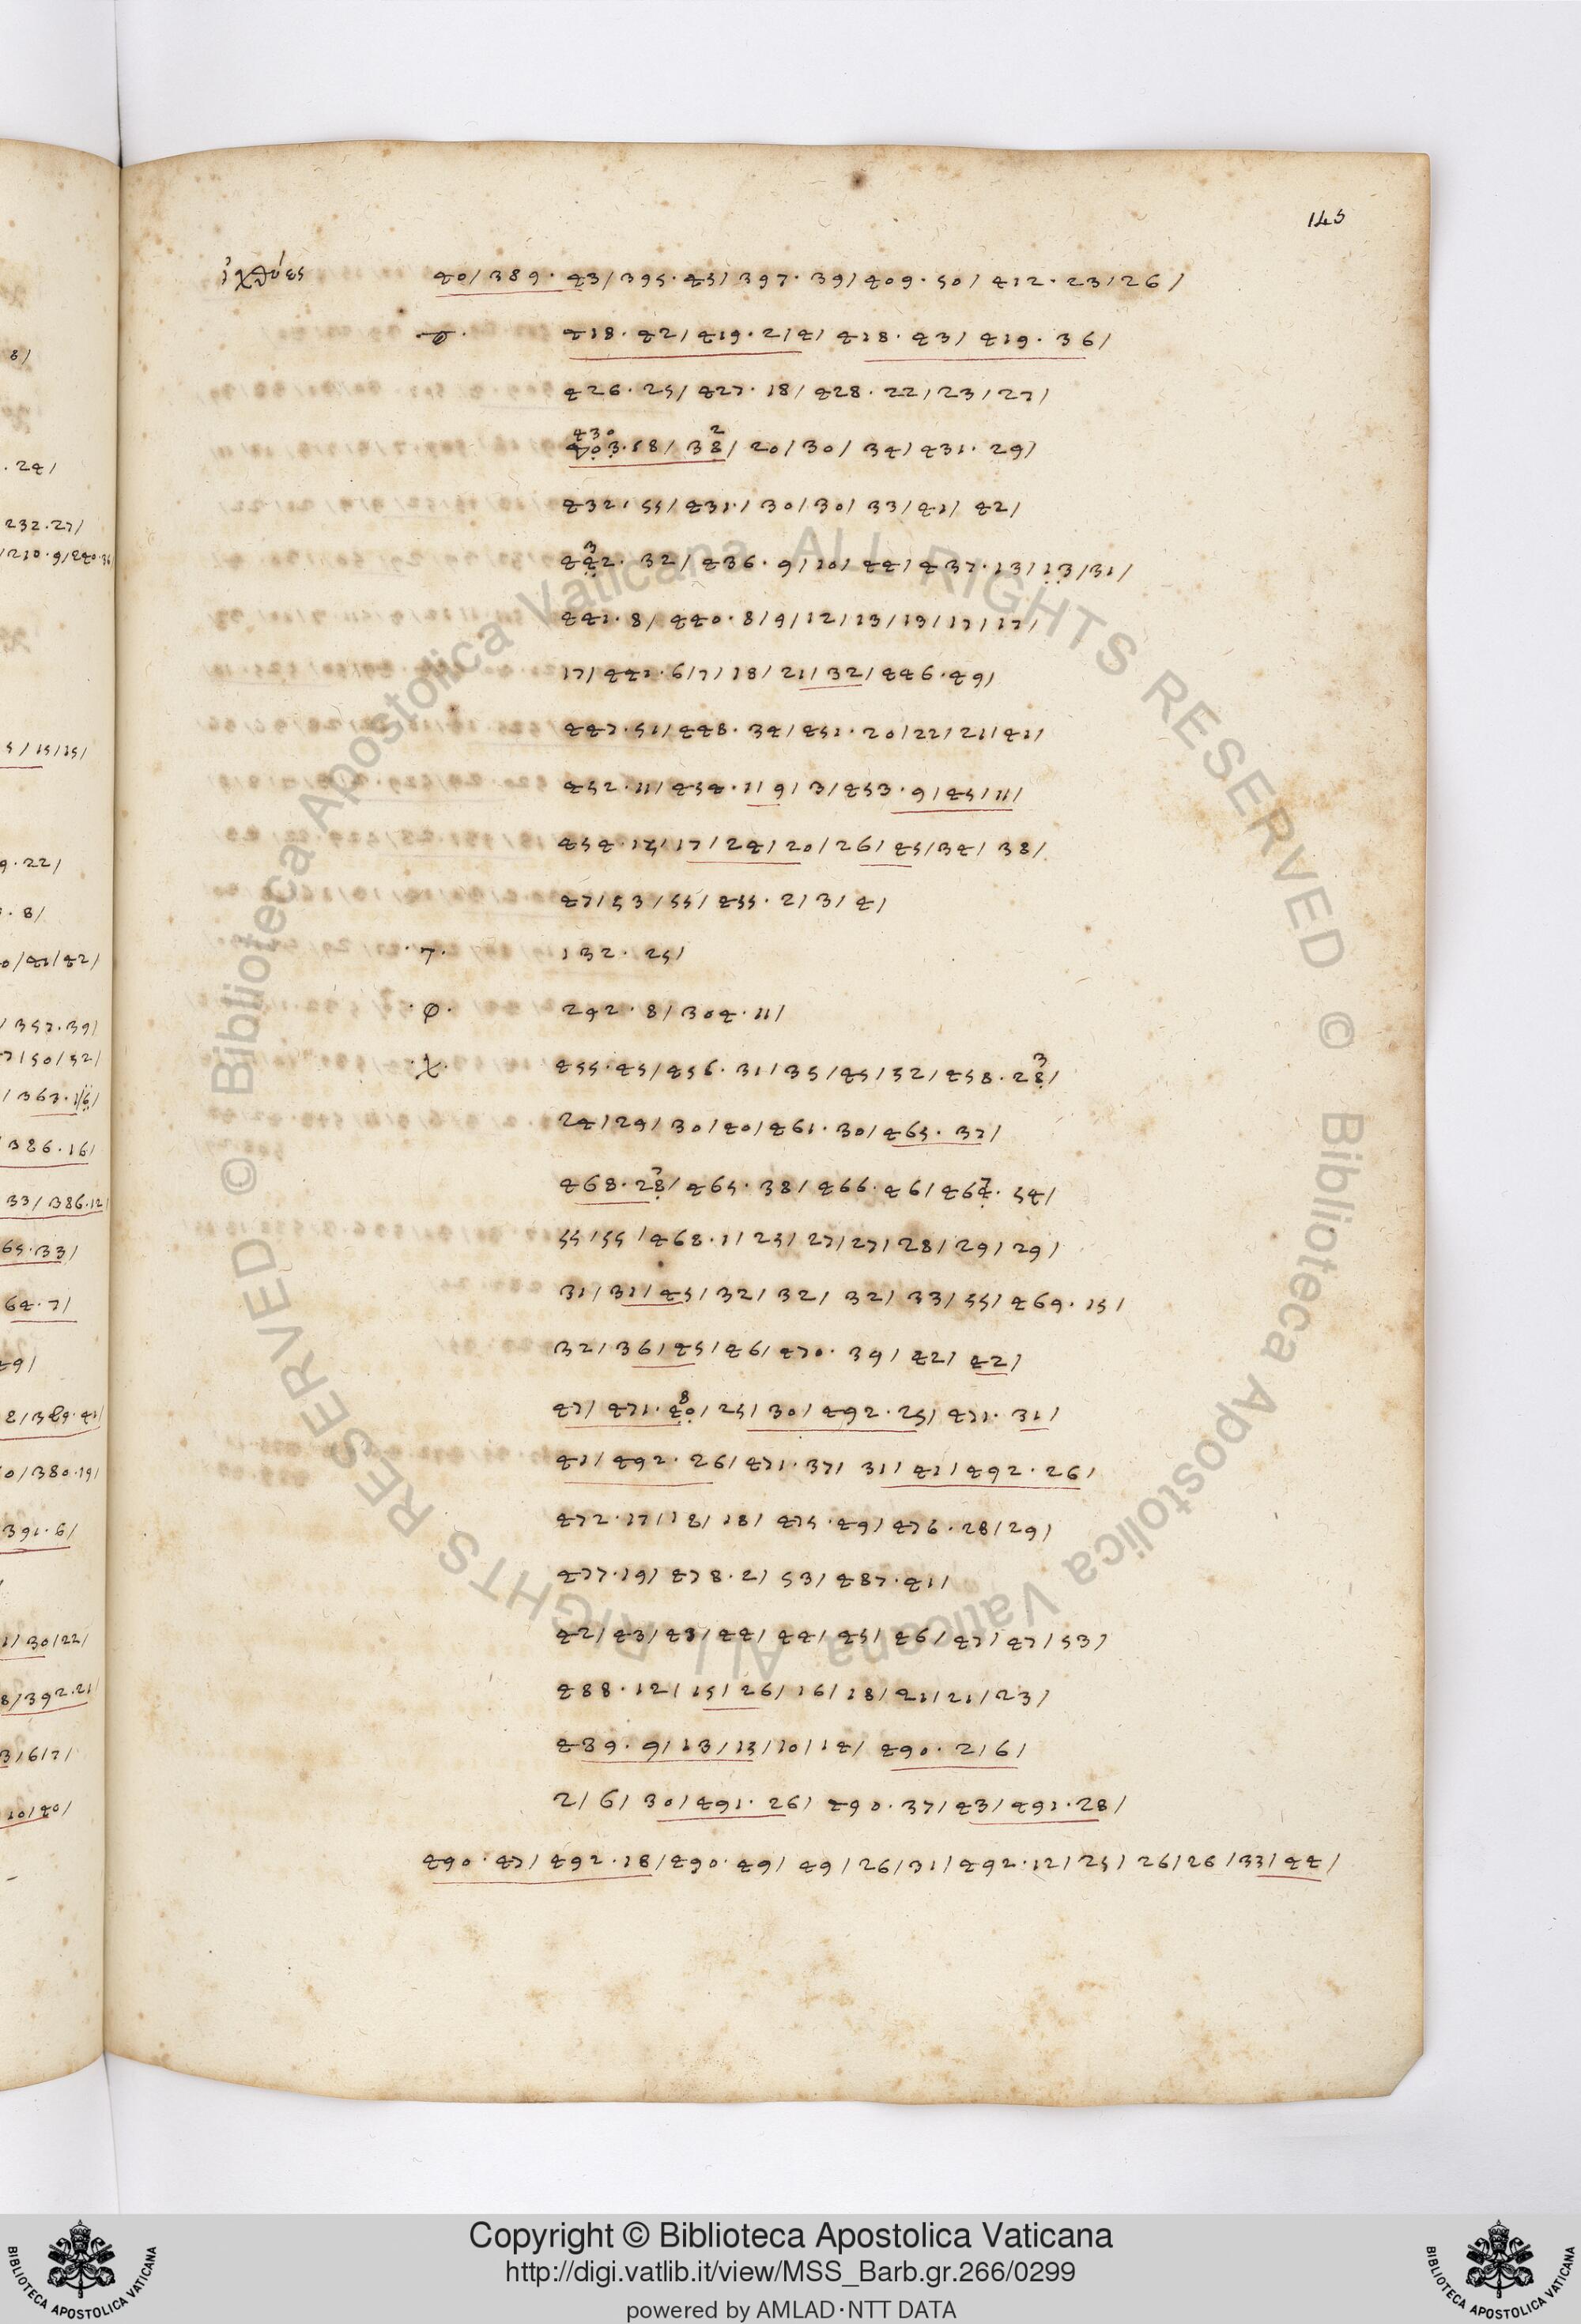 145
ἰχθύες 40/389.43/395.45/397.39/409.50/412.23/26/
.σ. 418.42/419.2/4/418.43/419.36/
426.25/427.18/428.22/23/27/
430 2
403.18/38/20/30/34/431.29/
432.55/431./30/30/33/41/42/
3
442.32/436.9/10/44/437.13/13/31/
441.8/440.8/9/12/13/13/17/17/
17/441.6/7/18/21/32/446.49/
447.51/448.34/451.20/22/21/41/
452.11/454.1/9/3/453.9/45/11/
454.15/17/24/20/26/45/34/38/
47/53/55/455.2/3/4/
.τ. 132.25/
.φ. 292.8/304.11/
3
.χ. 455.45/456.31/35/45/52/458.28/
24/29/30/40/461.30/465.37/
3 7
468.28/465.38/466.46/464.54/
55/55/468.1/25/27/27/28/29/29/
31/31/45/32/32/32/33/55/469.15/
32/36/45/46/470.39/42/42/
8
47/471.40/25/30/492.25/471.31/
41/492.26/471.37/31/41/492.26/
472.17/18/18/475.49/476.28/29/
477.19/478.2/53/487.41/
42/43/43/44/44/45/46/47/47/53/
488.12/15/26/16/18/21/21/23/
489.9/13/13/10/14/490.2/6/
2/6/30/491.26/490.37/43/491.28/
490.47/492.18/490.49/49/26/31/492.12/25/26/26/33/44/
Copyright © Biblioteca Apostolica Vaticana
http://digi.vatlib.it/view/MSS_Barb.gr.266/0299
powered by AMLAD·NTT DATA